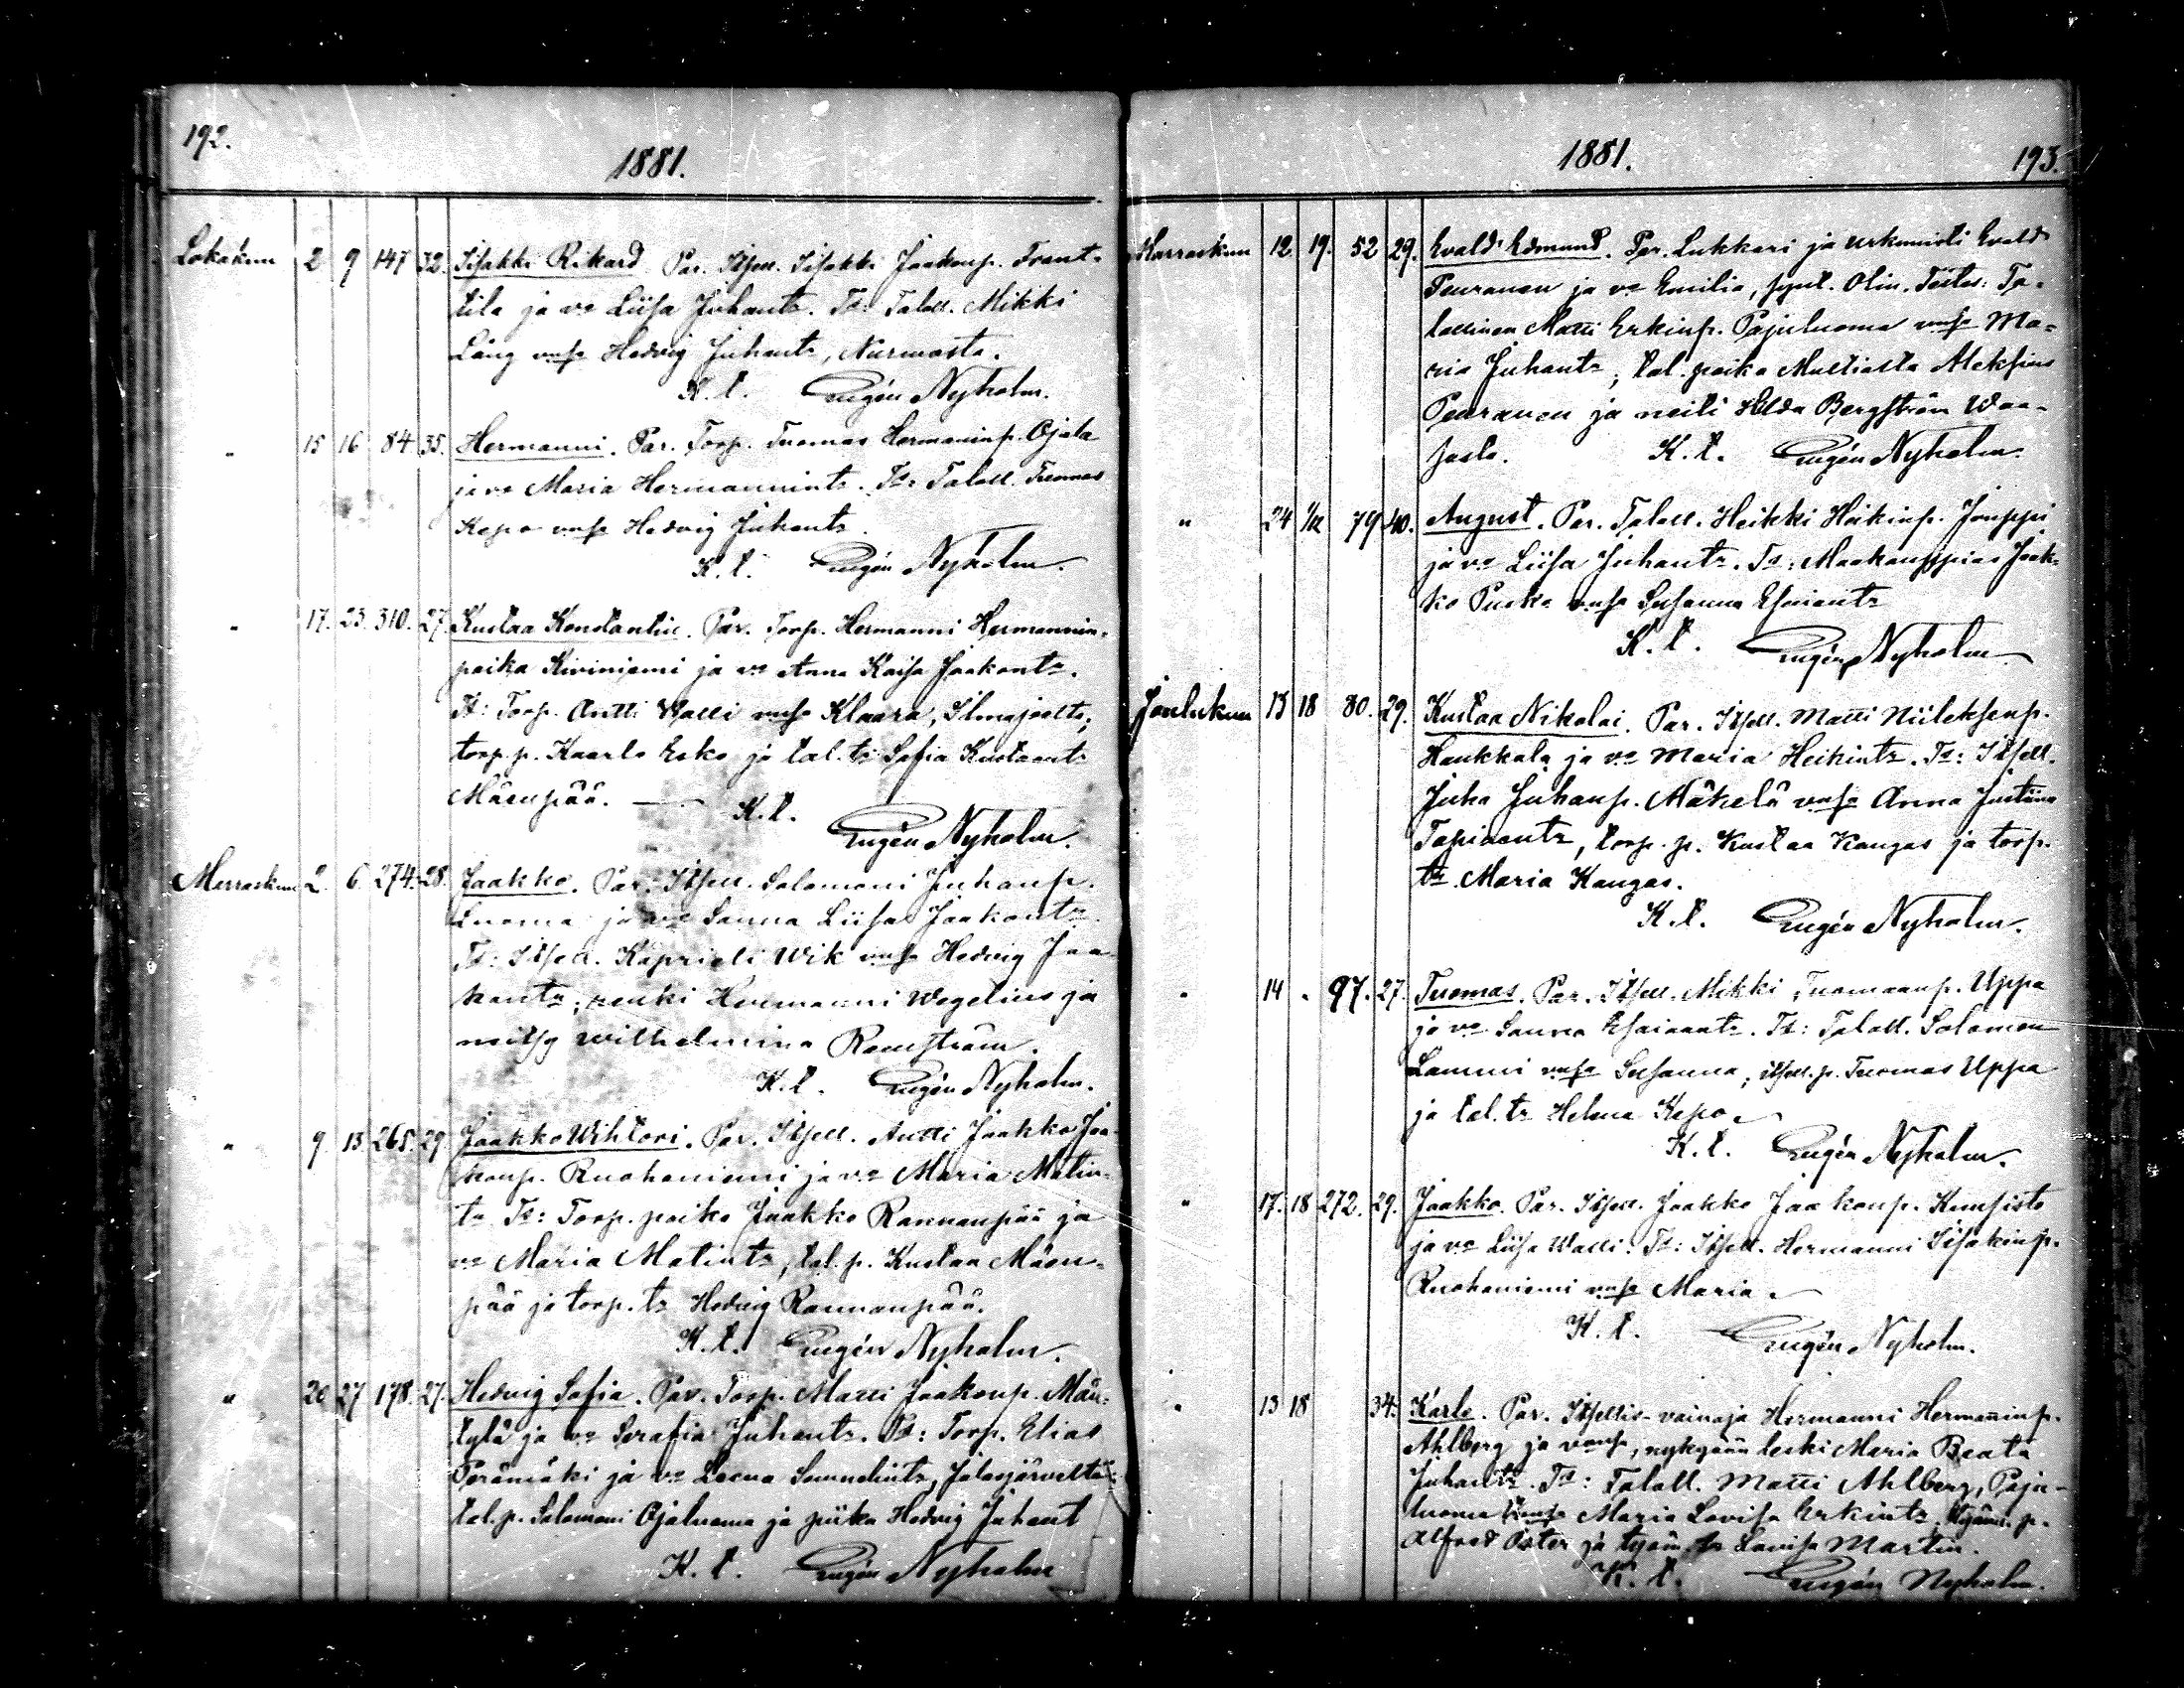 192.
1881.
Lokakuun 2 9 147 32. Iisakki Rikard. Par. Itsell. Iisakki Jaakonp. Frant-
tila ja vo Liisa Juhantr. Ts: Talell. Mikki
Lång vmsa Hedvig Juhantr, Nurmosta.
K. t. Eugén Nyholm.
" 15 16 84. 35. Hermanni. Par. Torp. Tuomas Hermaninp. Ojala
ja vo Maria Hermannintr. Ts: Talell. Tuomas
Kepo vmsa Hedvig Juhantr.
K. t. Eugén Nyholm.
" 17. 23. 310. 27. Kustaa Konstantin. Par. Torp. Hermanni Hermannin-
poika Kiviniemi ja vo Anna Kaisa Jaakontr.
Ts: Torp. Antti Walli vmsa Klaara, Ilmajoelta;
torp. p. Kaarlo Esko ja tal. tr Sofia Kustaantr
Mäenpää. K. t.
Eugén Nyholm.
Marraskuun 2. 6. 274. 28. Jaakko. Par. Itsell. Salomoni Juhanp.
Luoma ja vo Sanna Liisa Jaakontr.
Ts: Itsell. Kaprieli Wik vmsa Hedvig Jaa-
kontr; renki Hermanni Wegelius ja
neitsy Wilhelmina Renström.
K. t. Eugén Nyholm.
" 9. 13 265. 29. Jaakko Wihtori. Par. Itsell. Antti Jaakko Jaa-
konp. Ruohoniemi ja vo Maria Matin-
tr. Ts: Torp. poika Jaakko Rannanpää ja
vo Maria Matintr, tal. p. Kustaa Mäen-
pää ja torp. tr Hedvig Rannanpää.
K. t. Eugén Nyholm.
" 20 27 178. 27. Hedvig Sofia. Par. Torp. Matti Jaakonp. Män-
tylä ja vo Serafia Juhantr. Ts: Torp. Elias
Perämäki ja vo Leena Samuelintr, Jalasjärveltä;
tal. p. Salomoni Ojaluoma ja piika Hedvig Juhant
K. t. Eugén Nyholm
1881. 193.
Marraskuun 12. 19. 52 29. Evald Edmund. Par. Lukkari ja urkunisti Evald
Peuranen ja vo Emilia, synt. Olin. Testes: Ta-
lollinen Matti Erkinp. Pajuluoma vmsa Ma-
ria Juhantr; tal. poika Mustiasta Aleksius
Peuranen ja neiti Hilda Bergström Waa-
sasta. K. t. Eugén Nyholm.
" 24 1/12 79 40. August. Par. Talell. Heikki Heikinp. Jouppi
ja vo Liisa Juhantr. Ts: Maakauppias Jaak-
ko Puska vmsa Susanna Esaiantr
K. t. Eugén Nyholm
Joulukuun 13 18 80. 29. Kustaa Nikolai. Par. Itsell. Matti Niileksenp.
Haukkala ja vo Maria Heikintr. Ts: Itsell.
Juha Juhanp. Mäkelä vmsa Anna Justiina
Tapiaantr, torp. p. Kustaa Kangas ja torp.
tr. Maria Kangas.
K. t. Eugén Nyholm.
" 14 " 97. 27. Tuomas. Par. Itsell. Mikki Tuomaanp. Uppa
ja vo Sanna Esaiaantr. Ts: Talell. Salomon
Lammi vmsa Susanna; itsell. p. Tuomas Uppa
ja tal. tr Helena Kepo.
K. t. Eugén Nyholm.
" 17. 18 272. 29. Jaakko. Par. Itsell. Jaakko Jaakonp. Kuusisto
ja vo Liisa Walli. Ts: Itsell. Hermanni Iisakinp.
Ruohoniemi vmsa Maria.
K. t. Eugén Nyholm.
" 13 18 34. Karlo. Par. Itsellis-vainaja Hermanni Hermanninp.
Ahlberg ja vmsa, nykyään leski Maria Beata
Juhantr. Ts: Talell. Matti Ahlberg, Paju-
luoma vmsa Maria Lovisa Erkintr. p.
Alfred Öster ja Lovisa Martin.
K. t. Eugén Nyholm.